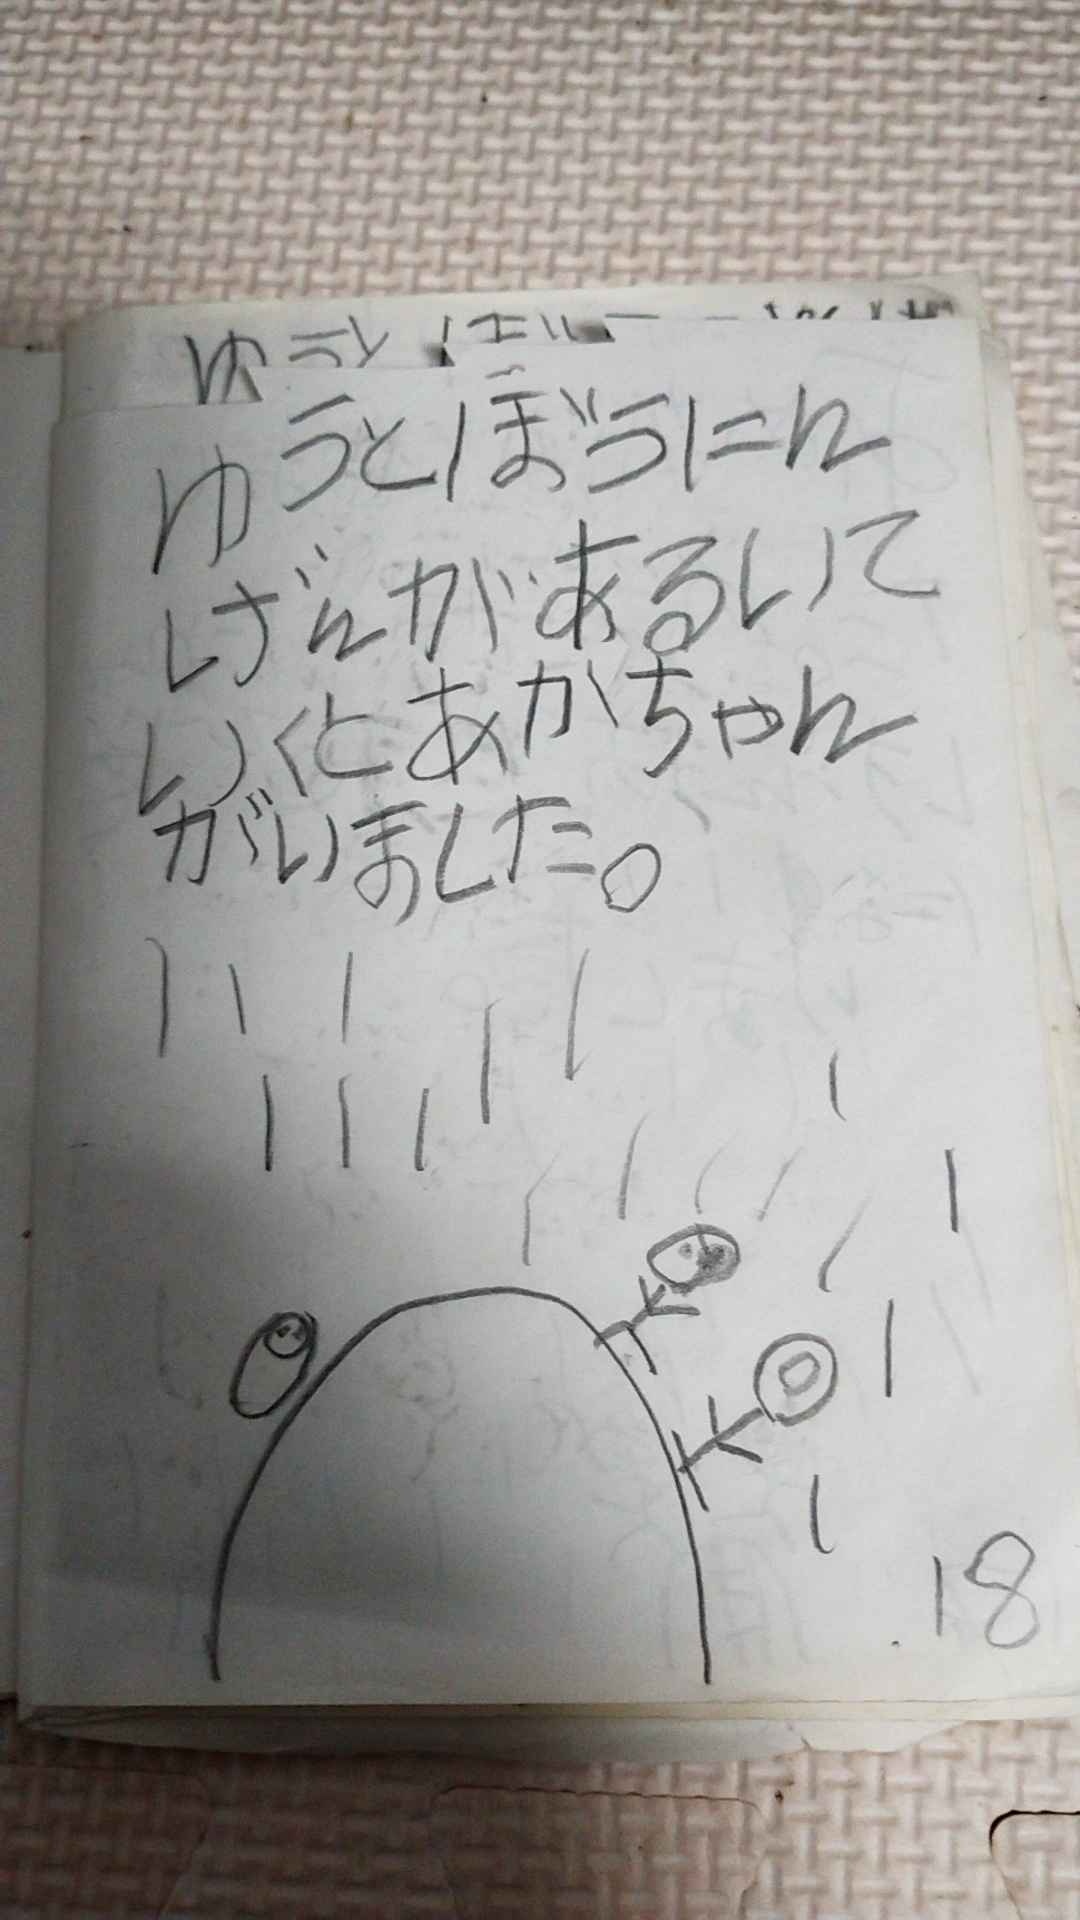 ゆうと
ゆうとぼうにん
げんがあるいて
いくとあかちゃん
がいました。
18